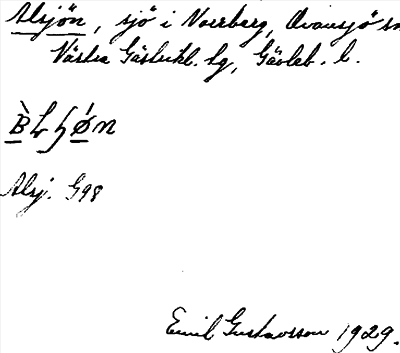 Alsjön, sjö i Norrberg, Ovansjö sn
Västra Gästrikl. hg, Gävleb. l.
Alsj. G98
Emil Gustavsson 1929.